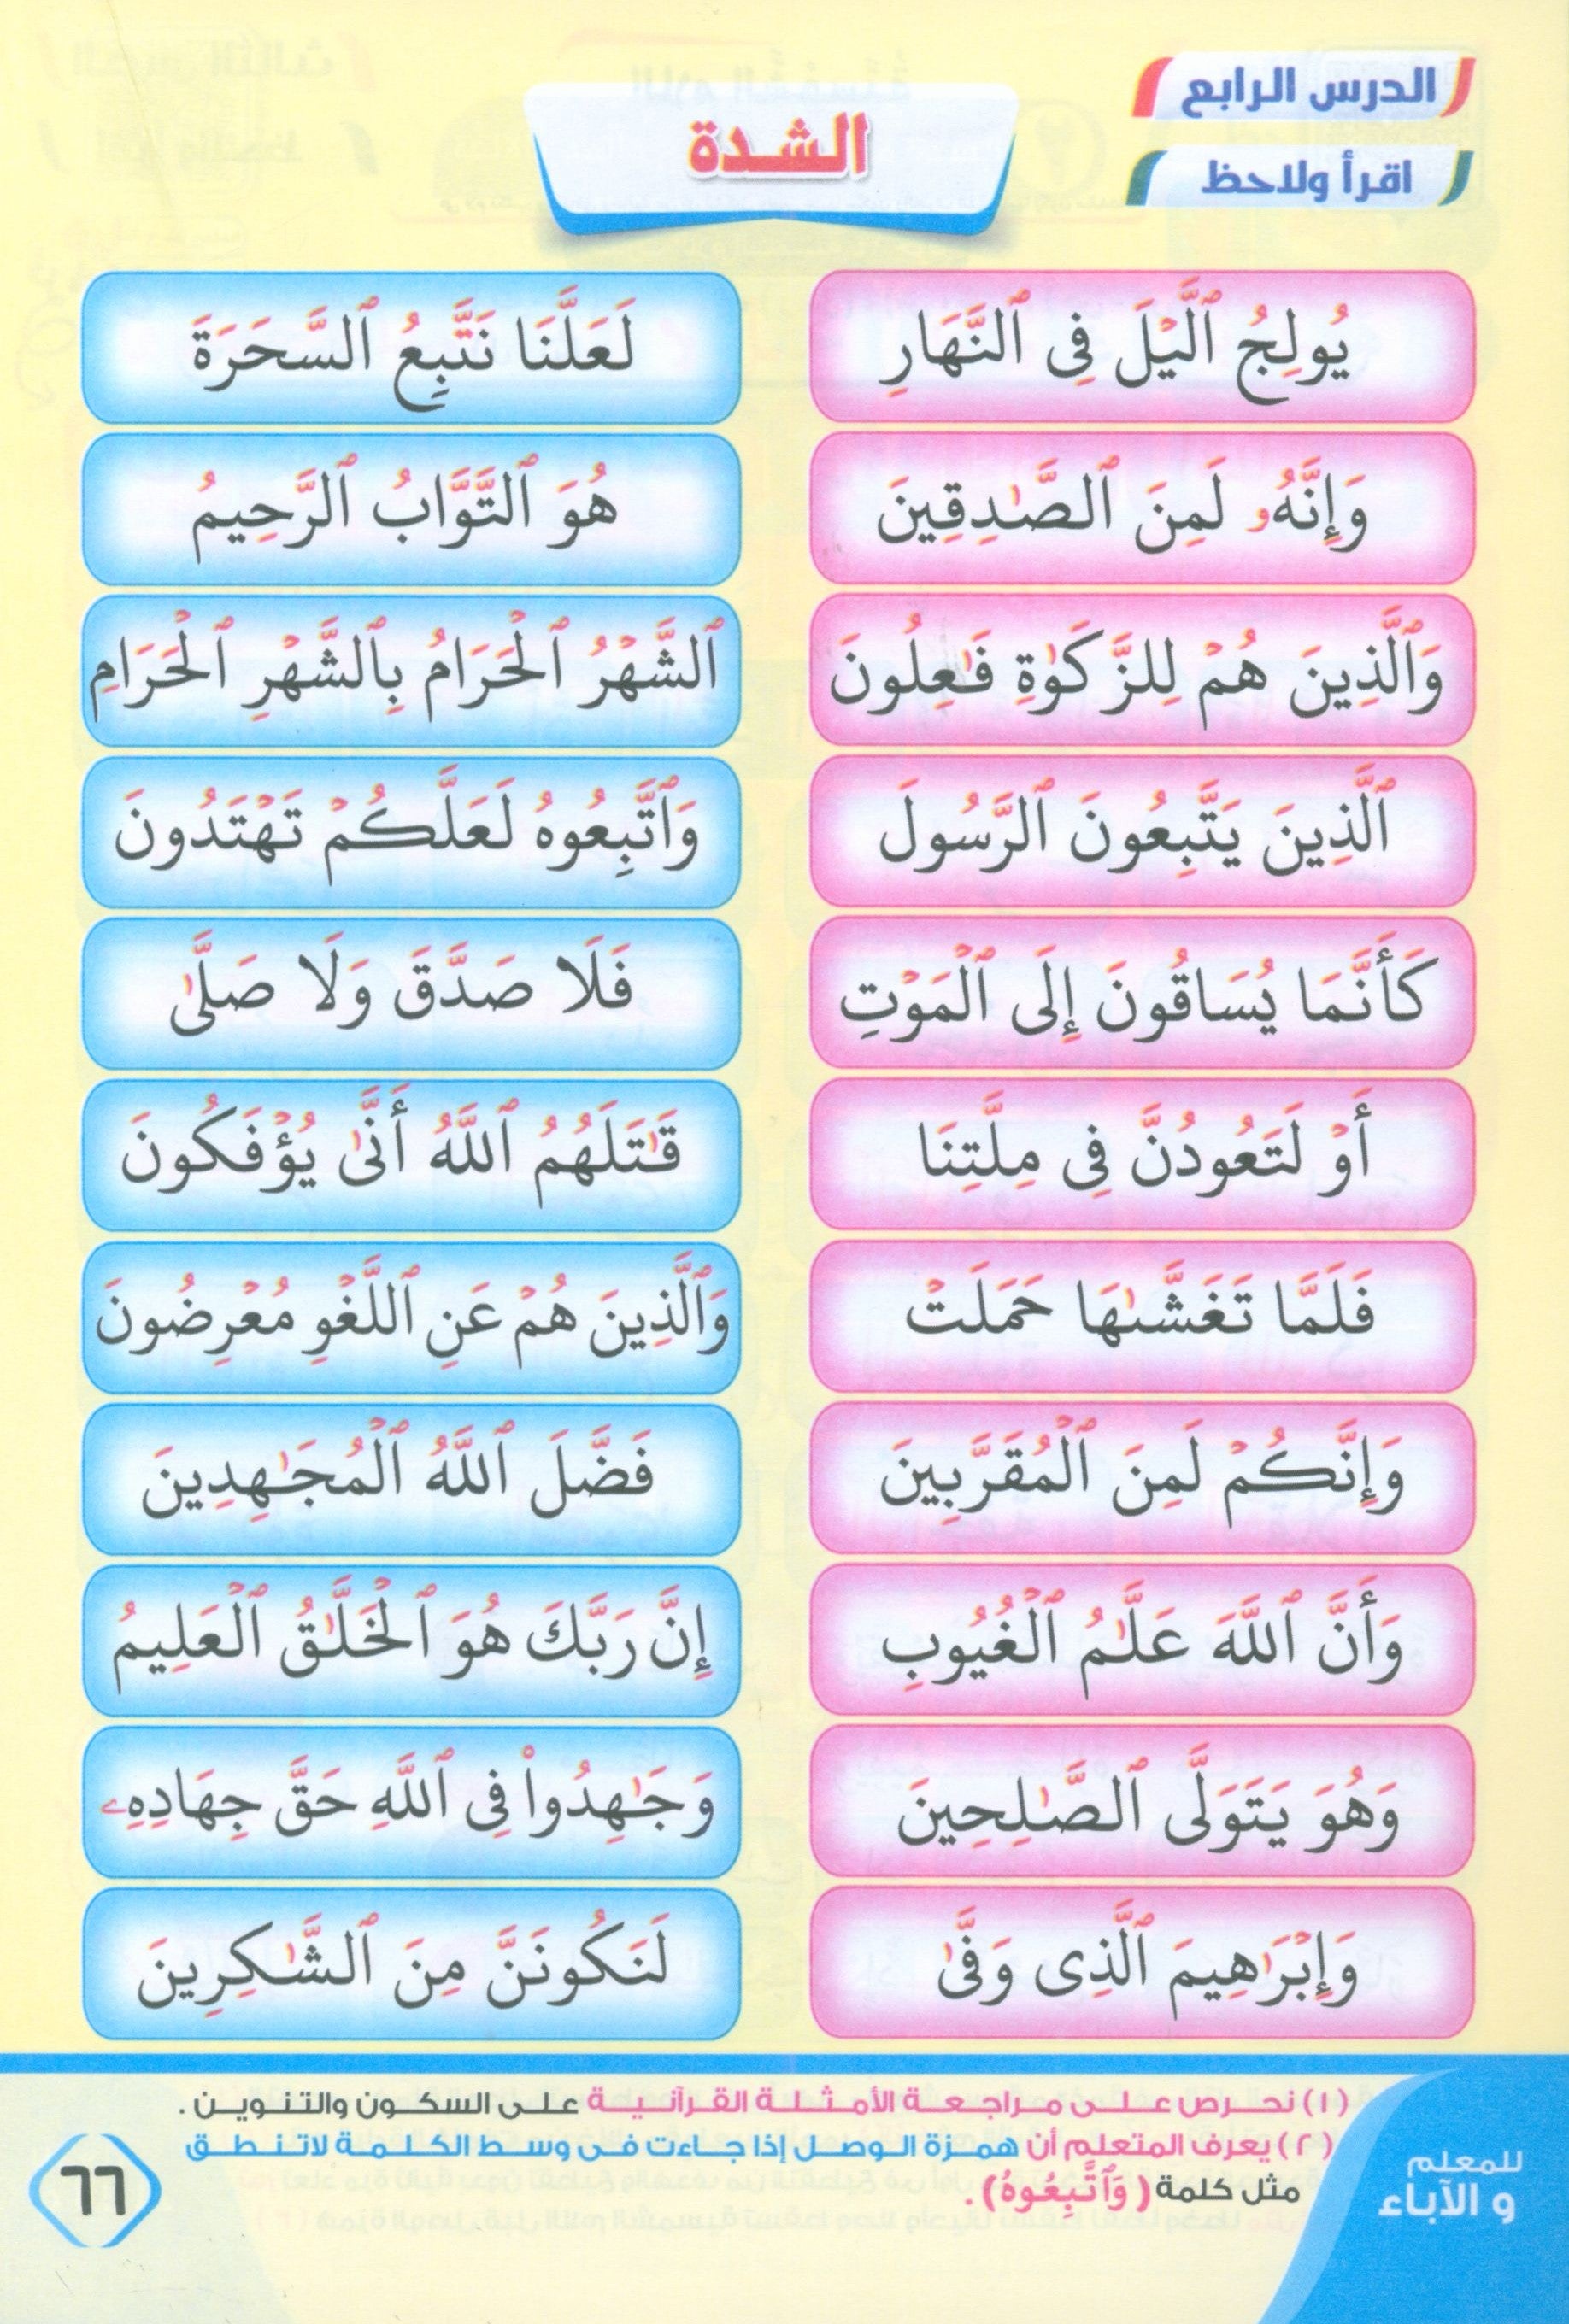 الدرس الرابع
الشدة
اقرأ ولاحظ
يُولِجُ ٱلَّيْلَ فِى ٱلنَّهَارِ
لَعَلَّنَا نَتَّبِعُ ٱلسَّحَرَةَ
وَإِنَّهُۥ لَمِنَ ٱلصَّٰدِقِينَ
هُوَ ٱلتَّوَّابُ ٱلرَّحِيمُ
وَٱلَّذِينَ هُمْ لِلزَّكَوٰةِ فَٰعِلُونَ
ٱلشَّهْرُ ٱلْحَرَامُ بِٱلشَّهْرِ ٱلْحَرَامِ
ٱلَّذِينَ يَتَّبِعُونَ ٱلرَّسُولَ
وَٱتَّبِعُوهُ لَعَلَّكُمْ تَهْتَدُونَ
كَأَنَّمَا يُسَاقُونَ إِلَى ٱلْمَوْتِ
فَلَا صَدَّقَ وَلَا صَلَّىٰ
أَوْ لَتَعُودُنَّ فِى مِلَّتِنَا
قَٰتَلَهُمُ ٱللَّهُ أَنَّىٰ يُؤْفَكُونَ
فَلَمَّا تَغَشَّىٰهَا حَمَلَتْ
وَٱلَّذِينَ هُمْ عَنِ ٱللَّغْوِ مُعْرِضُونَ
وَإِنَّكُمْ لَمِنَ ٱلْمُقَرَّبِينَ
فَضَّلَ ٱللَّهُ ٱلْمُجَٰهِدِينَ
وَأَنَّ ٱللَّهَ عَلَّٰمُ ٱلْغُيُوبِ
إِنَّ رَبَّكَ هُوَ ٱلْخَلَّٰقُ ٱلْعَلِيمُ
وَهُوَ يَتَوَلَّى ٱلصَّٰلِحِينَ
وَجَٰهِدُوا۟ فِى ٱللَّهِ حَقَّ جِهَادِهِۦ
وَإِبْرَٰهِيمَ ٱلَّذِى وَفَّىٰ
لَنَكُونَنَّ مِنَ ٱلشَّٰكِرِينَ
للمعلم
و الآباء
(١) نحرص على مراجعة الأمثلة القرآنية على السكون والتنوين .
(٢) يعرف المتعلم أن همزة الوصل إذا جاءت فى وسط الكلمة لاتنطق
مثل كلمة (وَٱتَّبِعُوهُ).
٦٦